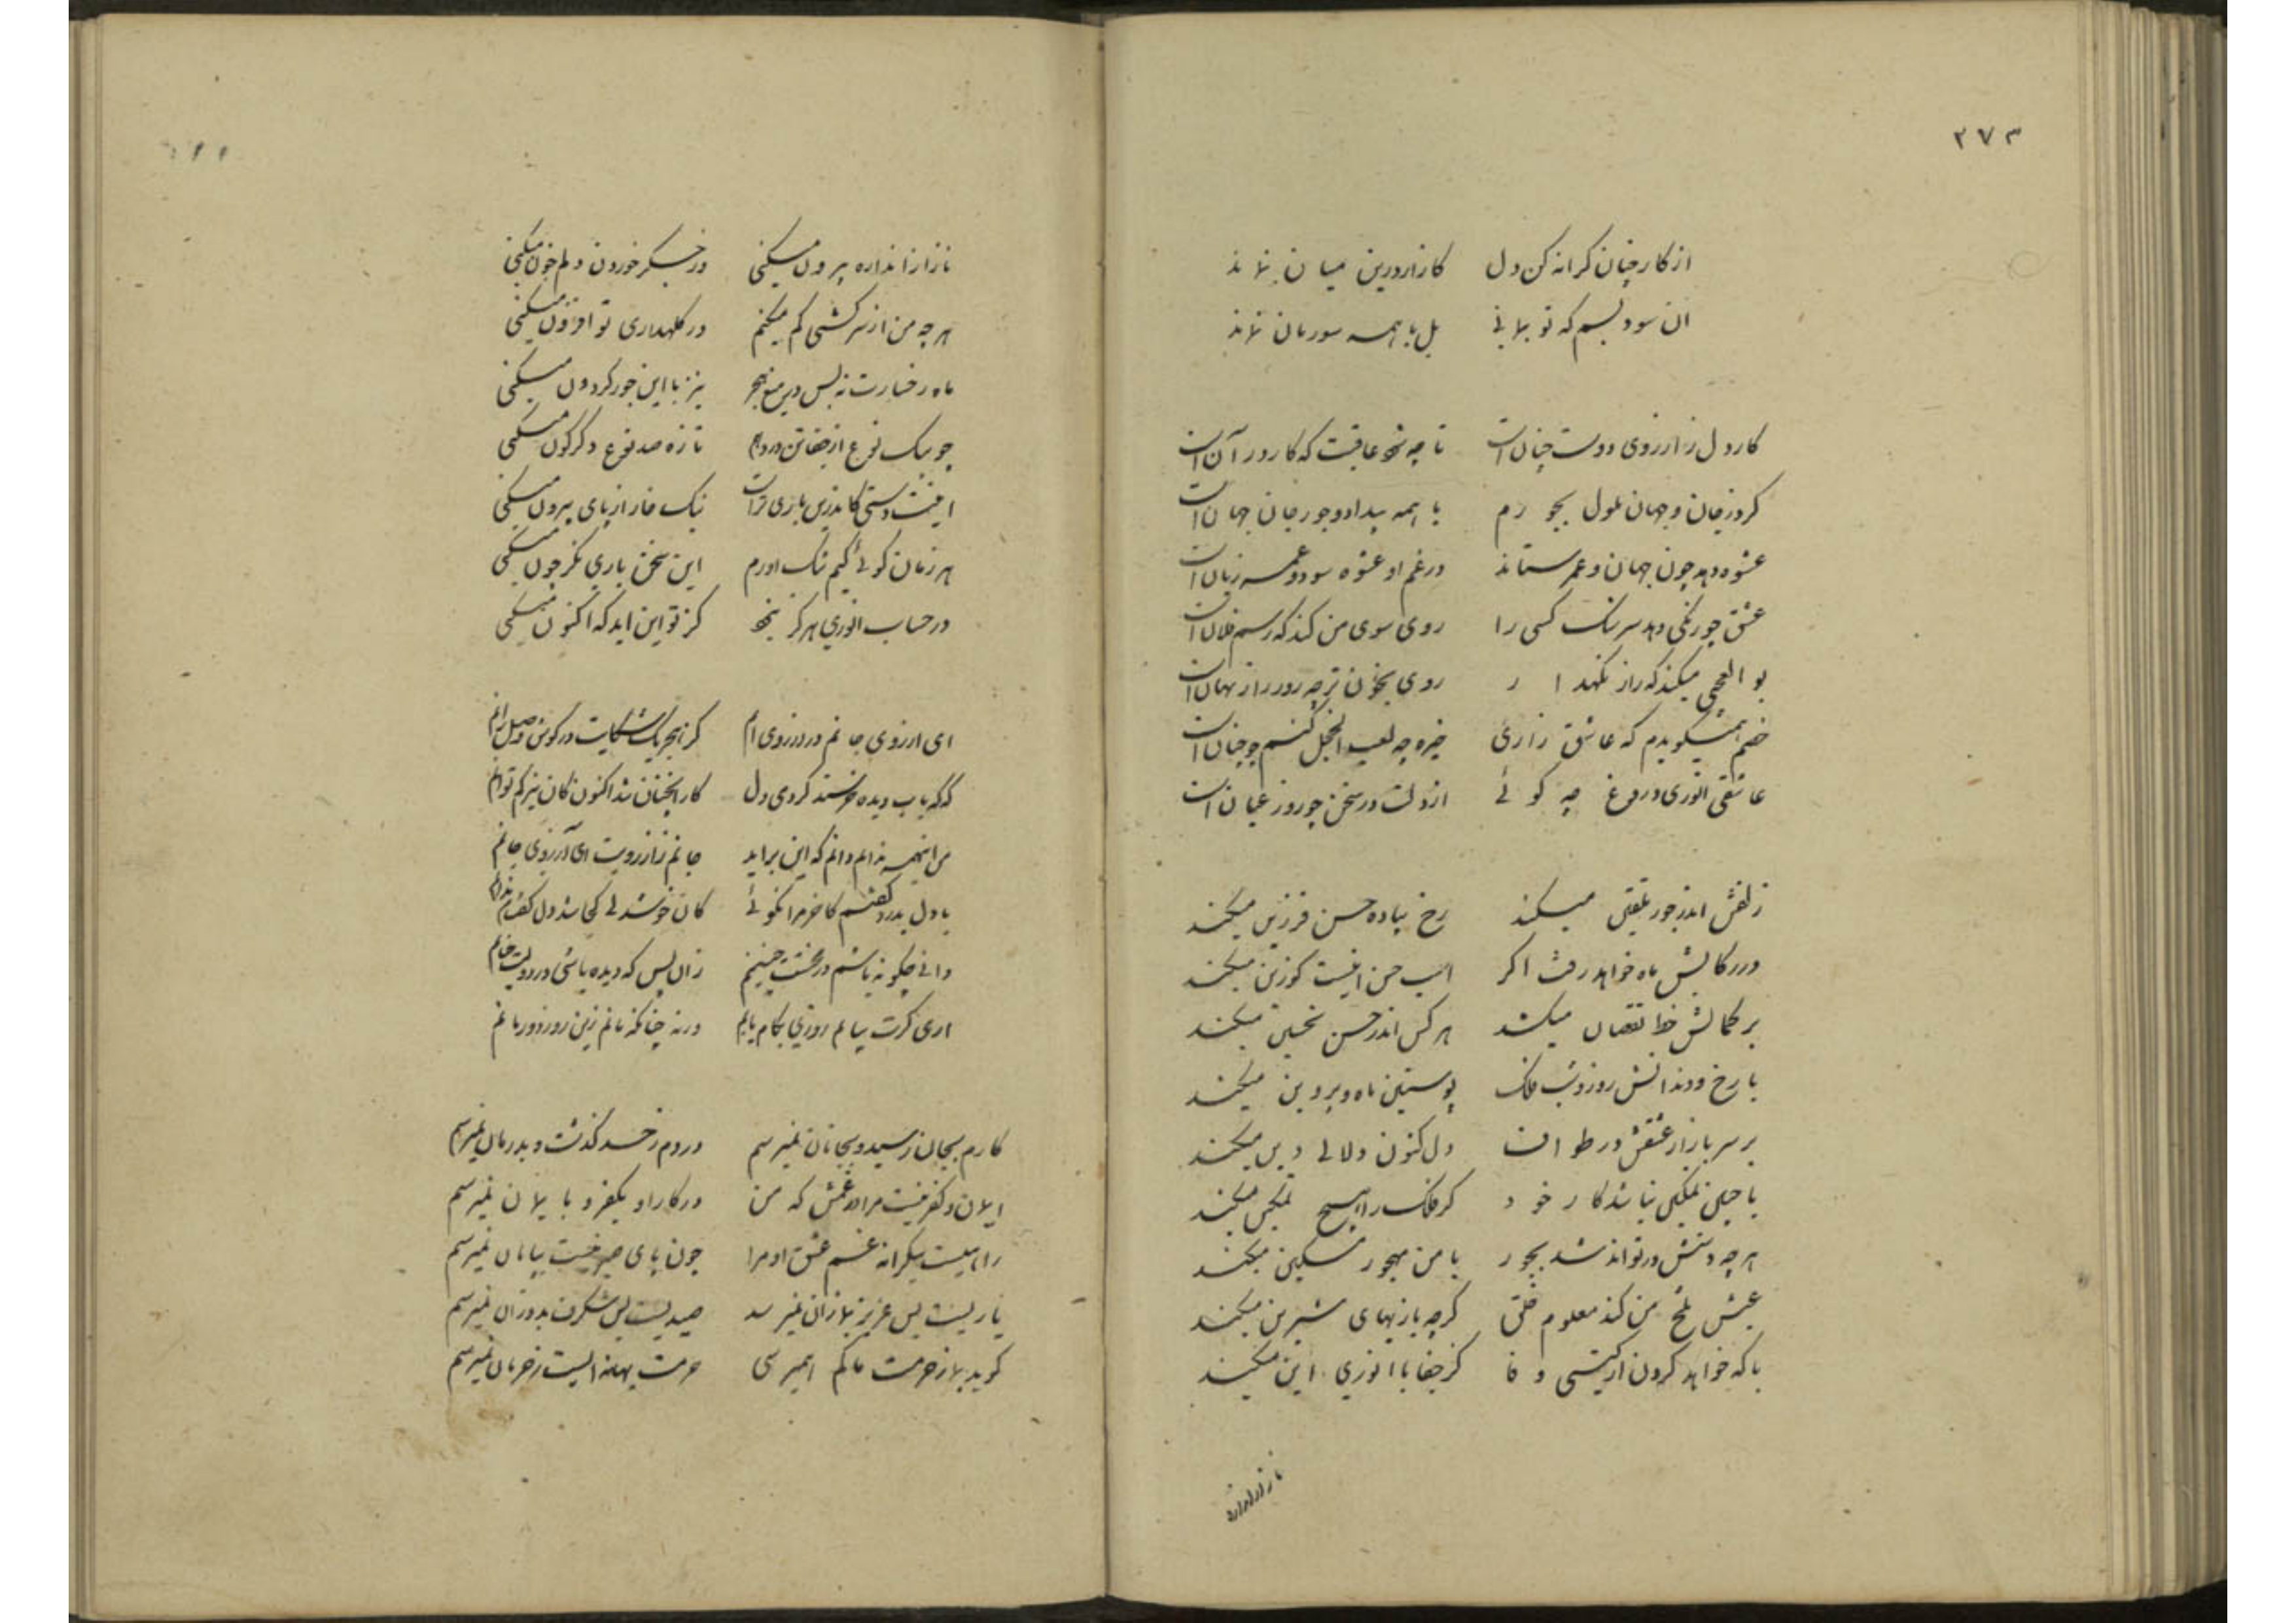 ۲۷۳
از کار چنان کرانه کن دل کازار درین میان نماند
ان سود بسم که تو بمانی بل با همه سور مان نماند
کار دل ز ارزوی دوست چنان است تا چه شود عاقبت که کار در آن است
کرد ز جان و جهان ملول بجورم با همه بیداد و جور جان جهان است
عشوه دهد چون جهان و عمر ستاند در غم او عشوه سود و عمر زیان است
عشق چو رنگی دهد سرشک کسی را روی سوی من کند که رسم فلان است
بو العجبی میکند که راز نگهدار روی بخون تر چه روز راز نهان است
خصم همیگویدم که عاشق زاری خیره چه لعب الخجل کنیم چو چنان است
عاشقی انوری دروغ چه گوئی از دلت در سخن چو روز عیان است
زلفش اندر جور تلقین میکند رخ پیاده حسن فرزین میکند
در رکابش ماه خواهد رفت اکر اسب حسن اینست کو زین میکند
بر کمالش خط نقصان میکشد هر کس اندر حسن تحسین میکند
با رخ و دندانش روز و شب فلک پوستین ماه و پروین میکند
بر سر بازار عشقش در طواف دل کنون دلالی دین میکند
با چنین تمکین نباشد کار خود کر فلک را هیچ تمکین میکند
هر چه دستش در تواند شد بجور با من مهجور مسکین میکند
عیش تلخ من کند معلوم خلق کرچه بازیهای شیرین میکند
با که خواهد کردن از کیتی وفا کز جفا با انوری این میکند
ناز از اندازه
ناز از اندازه بیرون میکنی در جگر خوردن دلم خون میکنی
هر چه من از سرکشی کم میکنم در کلهداری تو افزون میکنی
ماه رخسارت نه بس در میغ هجر نیز با این جور کردون میکنی
چو بیک نوع از جفا تن دردهم تازه صد نوع دگرگون میکنی
اینت دستی کاندرین بازی تراست نیک خار از پای بیرون میکنی
هر زمان کوئی کیم نیک اورم این سخن باری بگو چون میکنی
در حساب انوری هرگز نبود کز تو این اید که اکنون میکنی
ای ارزوی جانم در ارزوی انم کز هجر یک شکایت در گوش وصل رانم
که که باب دیده خرسند کردی دل کار انچنان شد اکنون کان نیز کم توانم
من اینهمه ندانم دانم که این بر اید جانم ز ارزویت ای آرزوی جانم
با دل بدرد گفتم کاخر مرا نگوئی کان خوشدلی کجا شد دل گفت من ندانم
دانی چگونه باشم در محنت چنینم زان پس که دیده باشی در دولت چنانم
اری گرت بیابم روزی بکام یابم ورنه چنانکه مانم زین روز دور مانم
کارم بجان رسید و بجانان نمیرسم دردم ز حد گذشت و بدرمان نمیرسم
ایمان و کفر نیست مرا در غمش که من در کار او بکفر و بایمان نمیرسم
راهیست بیکرانه غم عشق او مرا چون پای صبر نیست بپایان نمیرسم
یاریست بس عزیز بما زان نمیرسد صیدیست بس شگرف بدو زان نمیرسم
گوید بما ز حرمت ما کم همیرسی حرمت بهانه ایست ز حرمان نمیرسم